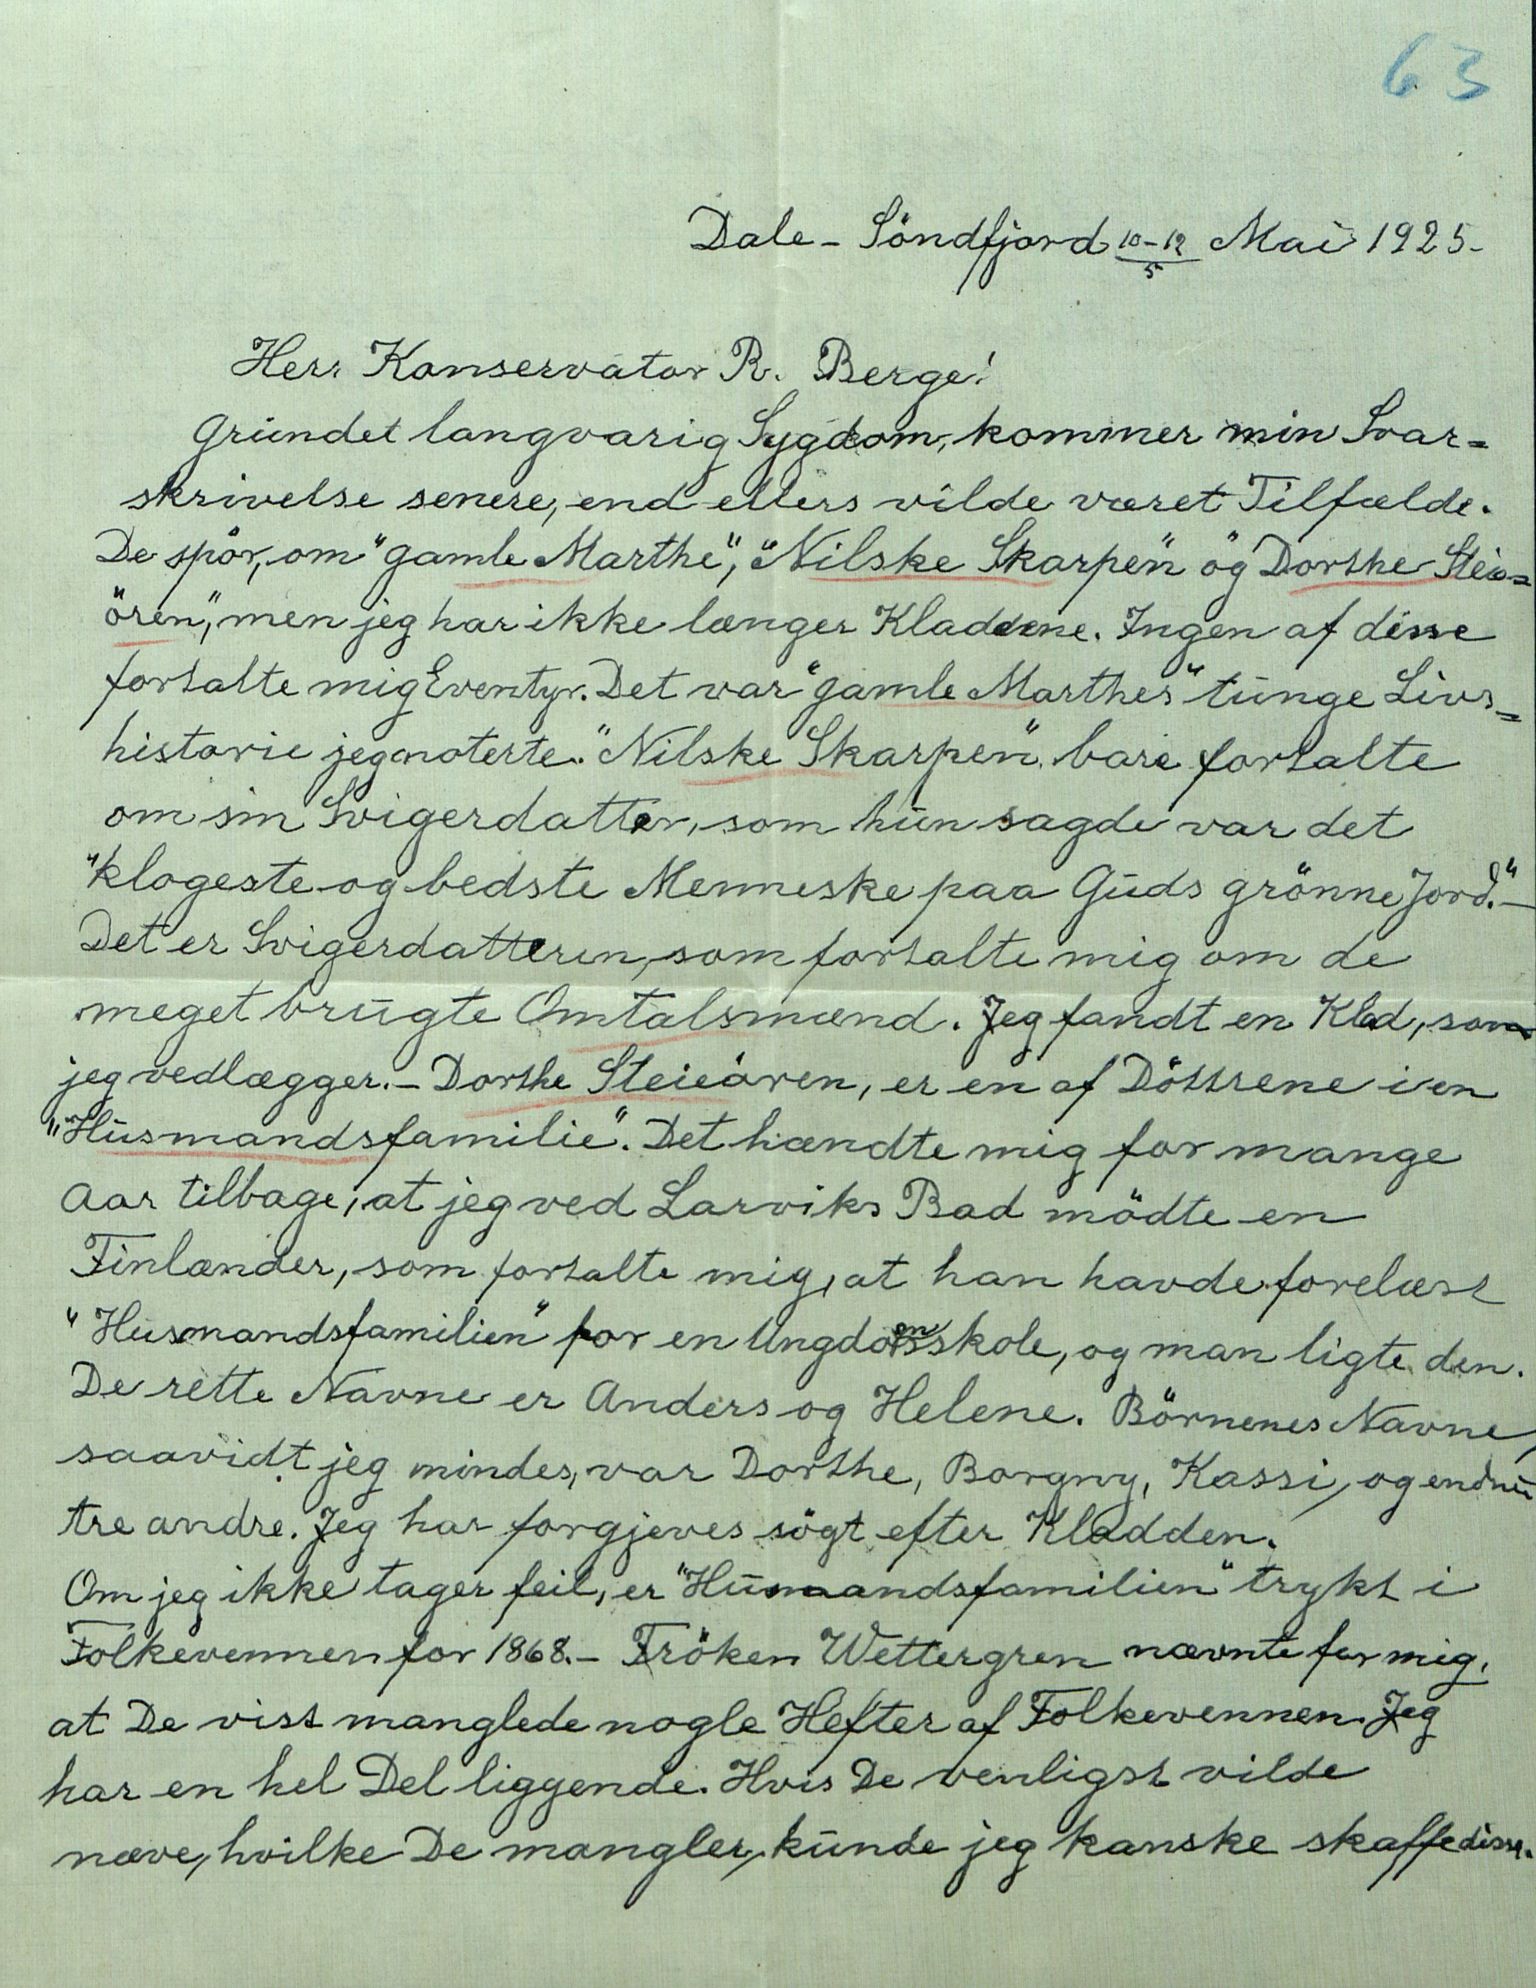 63
Dale - Söndfjord 10-12/5 Mai 1925.
Herr Konservator R. Berge!
Grundet langvarig Sygdom, kommer min Svar=
skrivelse senere, end ellers vilde været Tilfælde.
De spör, om "gamle Marthe", "Nilske Skarpen" og Dorthe Steie=
ören", men jeg har ikke længer Kladdene. Ingen af disse
fortalte mig Eventyr. Det var "gamle Marthes" tunge Livs=
historie jeg noterte. "Nilske Skarpen" bare fortalte
om sin Svigerdatter, som hun sagde var det
"klogeste og bedste Menneske paa Guds grönne Jord." -
Det er Svigerdatteren, som fortalte mig om de
meget brugte Omtalsmænd. Jeg fandt en Klad, som
jeg vedlægger. - Dorthe Steieören, er en af Döttrene i en
"Husmandsfamilie". Det hændte mig for mange
Aar tilbage, at jeg ved Larviks Bad mödte en
Finlænder, som fortalte mig, at han havde forelæst
"Husmandsfamilien" for en Ungdomsskole, og man ligte den.
De rette Navne er Anders og Helene. Börnenes Navne,
saavidt jeg mindes, var Dorthe, Borgny, Kassi, og endnu
tre andre. Jeg har forgjeves sögt efter Kladden.
Om jeg ikke tager feil, er "Husmandsfamilien" trykt i
Folkevennen for 1868. - Fröken Wettergren nævnte for mig,
at De vist manglede nogle Hefter af Folkevennen. Jeg
har en hel Del liggende. Hvis De venligst vilde
næve, hvilke De mangler, kunde jeg kanske skaffe disse.